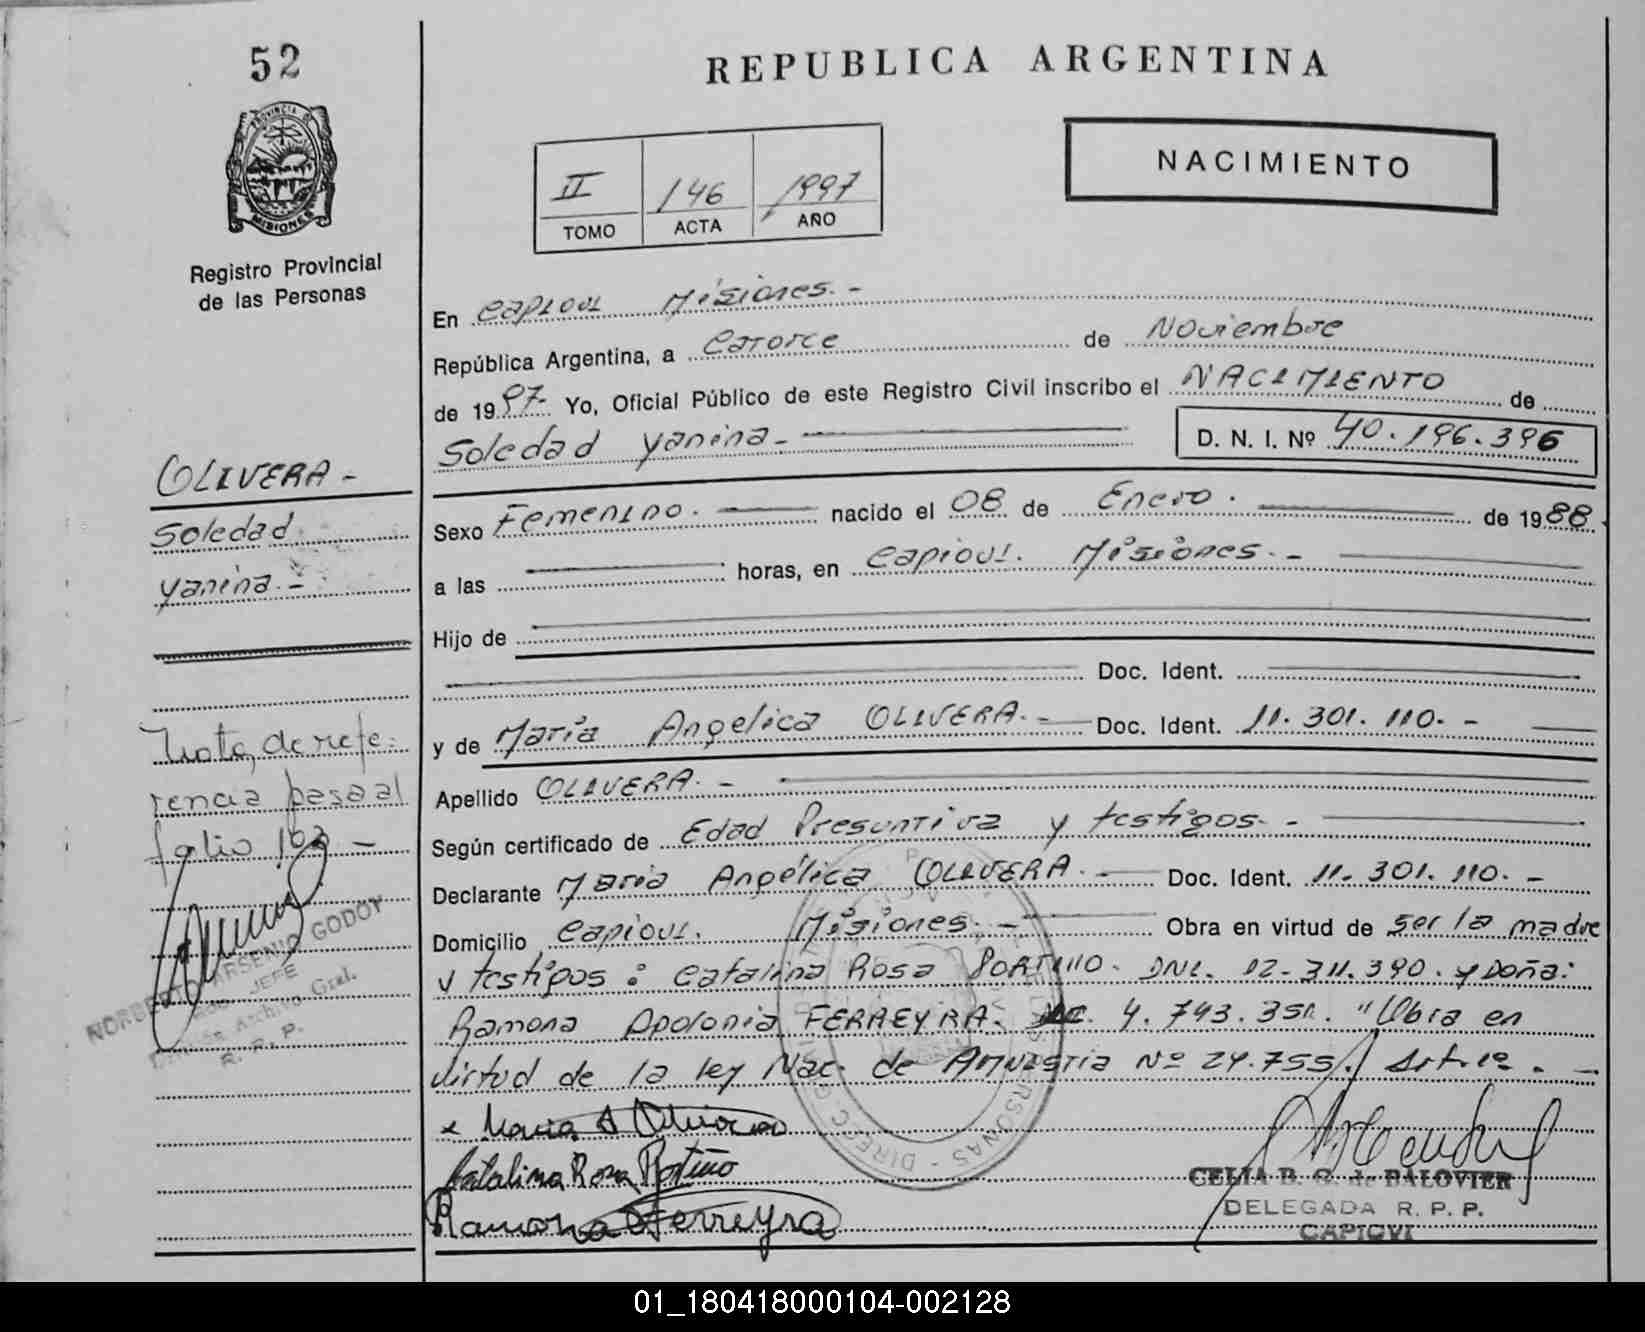 52
REPUBLICA ARGENTINA
PROVINCIA DE
MISIONES
Registro Provincial
de las Personas
II 146 1997
TOMO ACTA AÑO
NACIMIENTO
En Capiovi Misiones.-
República Argentina, a Catorce de Noviembre
de 1997- Yo, Oficial Público de este Registro Civil inscribo el NACIMIENTO de
Soledad Yanina.- D. N. I. Nº 40.196.396
OLIVERA-
Soledad
Yanina.-
Sexo Femenino. nacido el 08 de Enero. de 1988.
a las horas, en Capiovi. Misiones.-
Hijo de
Doc. Ident.
y de María Angelica OLIVERA.- Doc. Ident. 11.301.110.-
Apellido OLIVERA.-
Según certificado de Edad Presuntiva y testigos.-
Declarante María Angélica OLIVERA.- Doc. Ident. 11.301.110.-
Domicilio Capiovi. Misiones.- Obra en virtud de ser la madre
y testigos: Catalina Rosa PORTILLO. DNI. 12.311.390. y Doña:
Ramona Apolonia FERREYRA. 4.743.351. "Obra en
virtud de la ley Nac. de Amnistia Nº 24.755/ Art. 1º.-
Nota de refe-
rencia pasa al
folio 103-
NORBERTO ARSENIO GODOY
JEFE
Archivo Gral.
R. P. P.
Maria A Olivera
Catalina Rosa Portillo
Ramona Ferreyra
CELIA B. G. de BALOVIER
DELEGADA R. P. P.
CAPIOVI
01_180418000104-002128